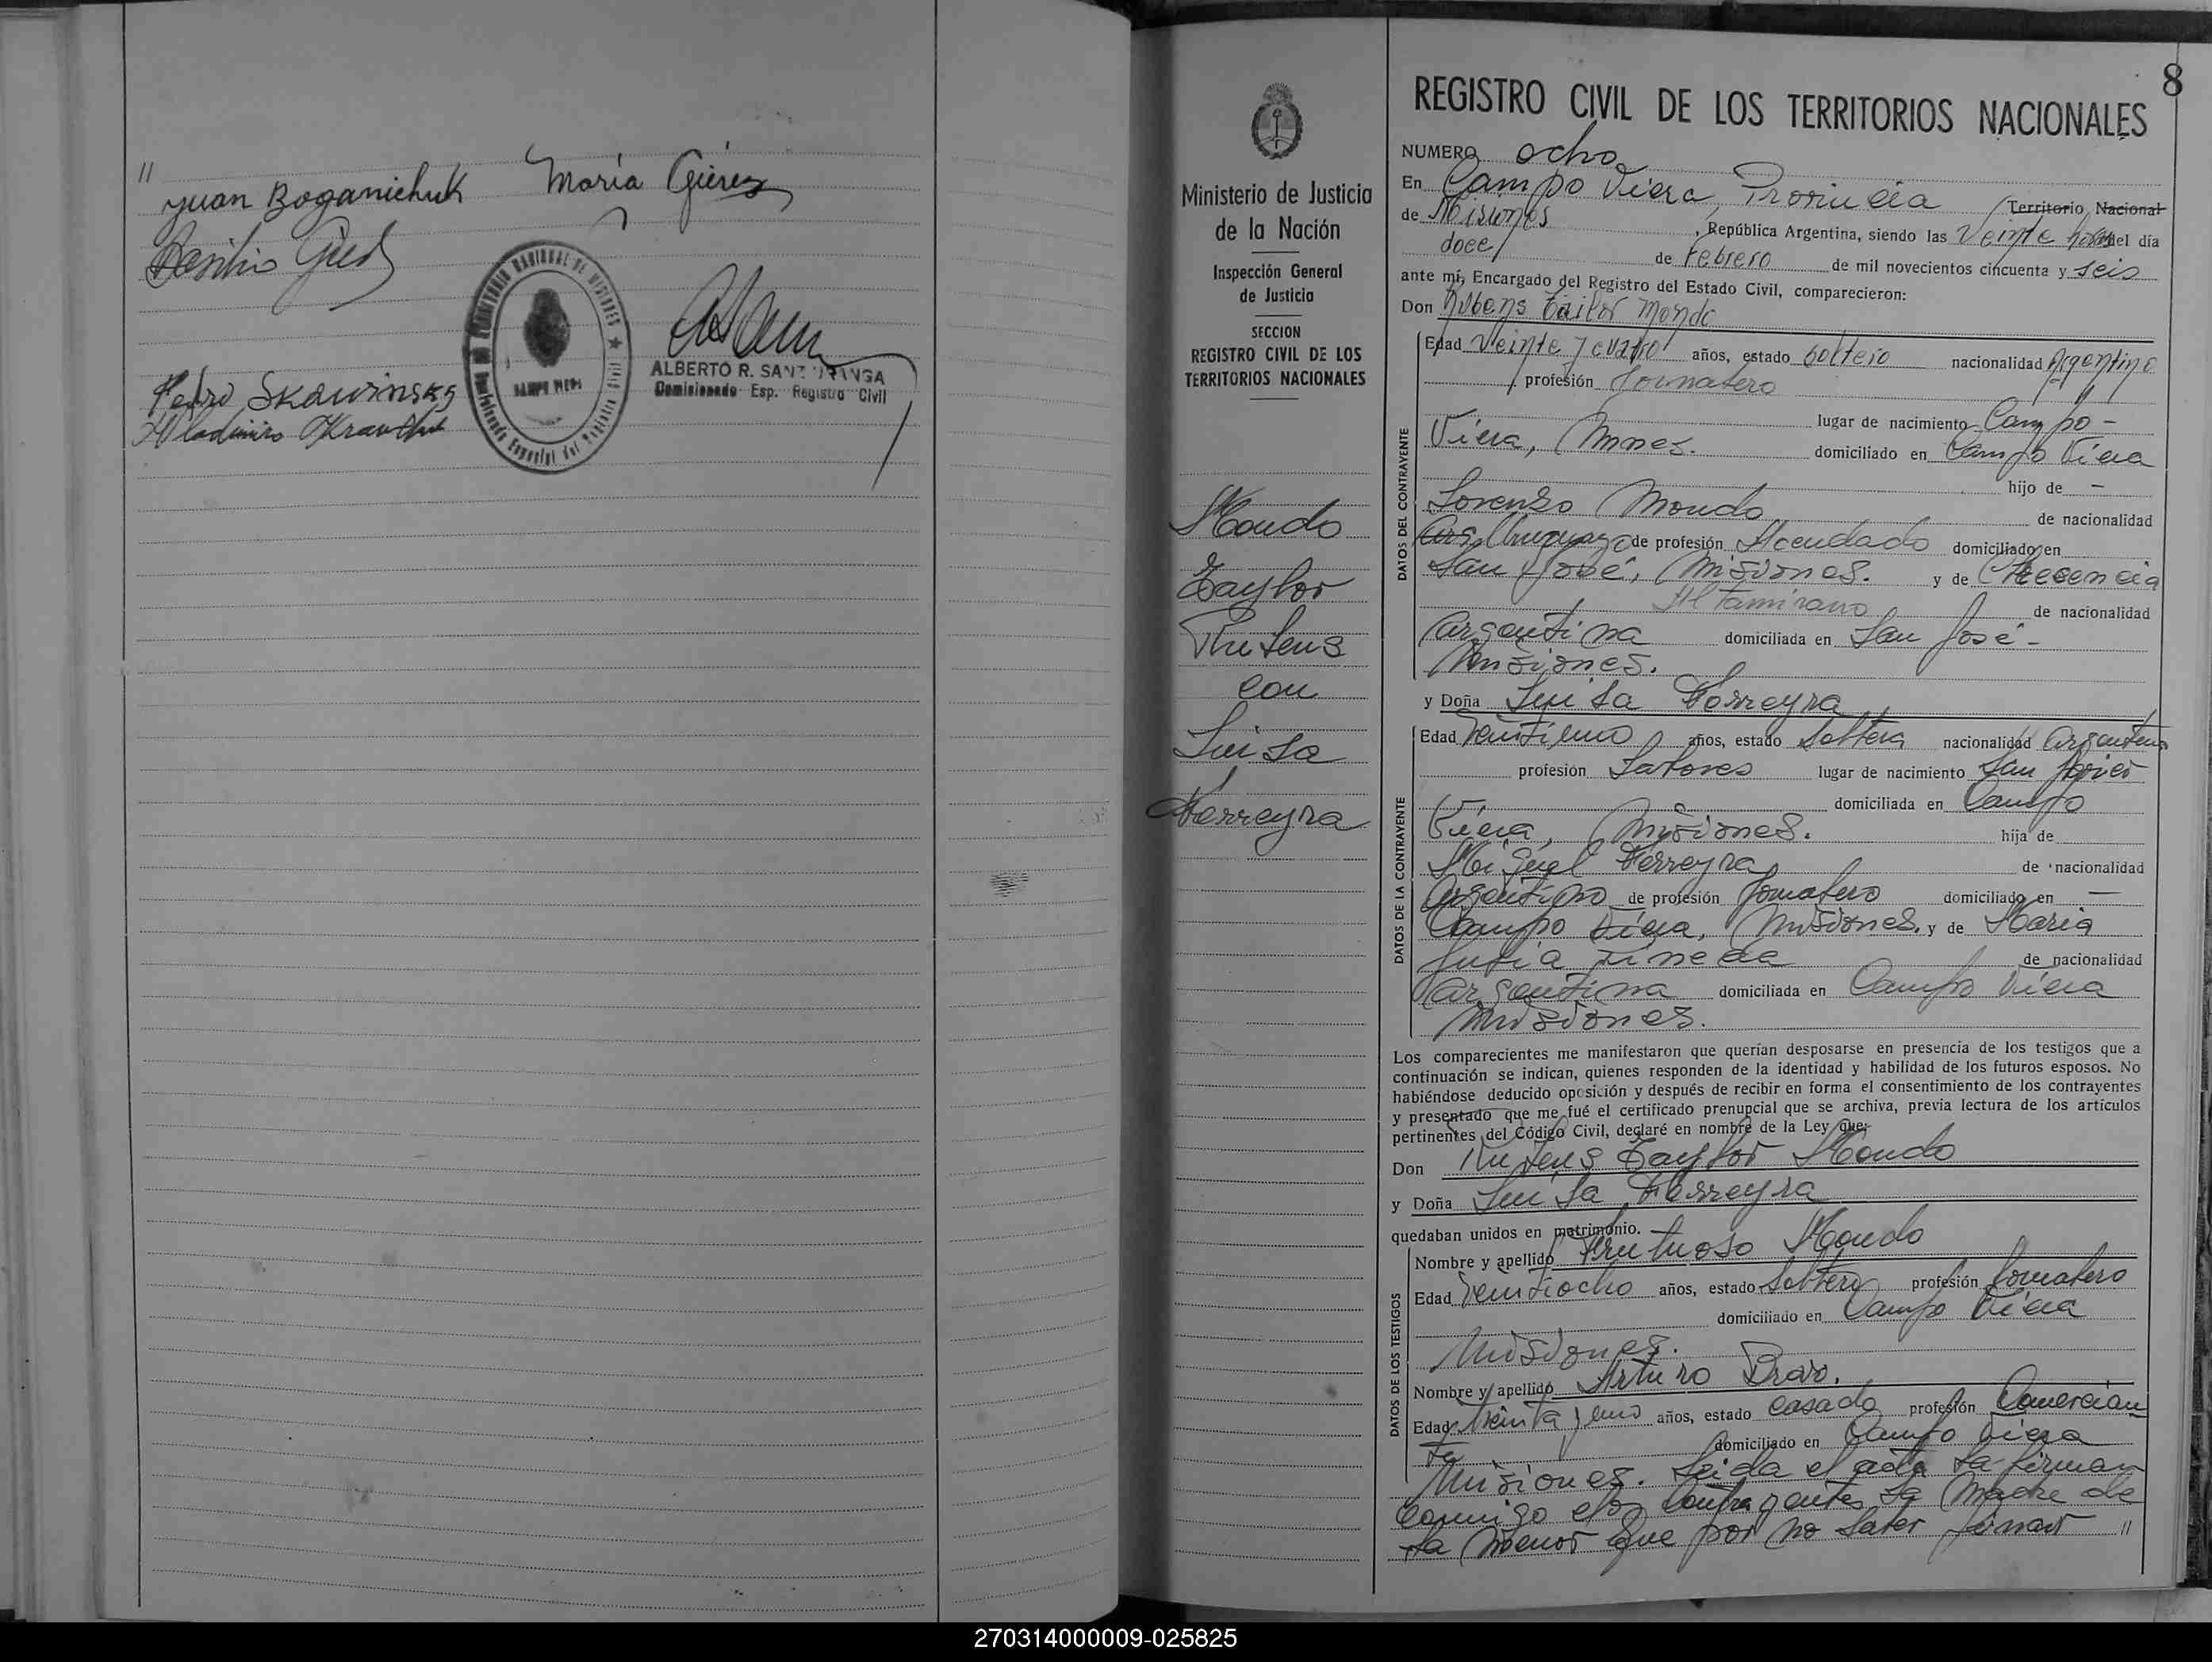 "
Juan Boganichuk María Giérez
Basilio
Pedro Skawinski
Wladimiro
CAMPO VIERA
ALBERTO R. SANZ
Comisionado Esp. Registro Civil
Ministerio de Justicia
de la Nación
Inspección General
de Justicia
SECCION
REGISTRO CIVIL DE LOS
TERRITORIOS NACIONALES
Mondo
Taylor
Rubens
con
Luisa
Ferreyra
8
REGISTRO CIVIL DE LOS TERRITORIOS NACIONALES
NUMERO ocho
En Campo Viera, Provincia Territorio Nacional
de Misiones, República Argentina, siendo las Veinte horas del día
doce de Febrero de mil novecientos cincuenta y seis
ante mí, Encargado del Registro del Estado Civil, comparecieron:
Don Rubens Tailor Mondo
DATOS DEL CONTRAYENTE
Edad Veinte y cuatro años, estado soltero nacionalidad Argentino
profesión Jornalero
lugar de nacimiento Campo-
Viera, Mnes. domiciliado en Campo Viera
hijo de -
Lorenzo Mondo de nacionalidad
Arg. Uruguayo de profesión Hacendado domiciliado en
San José, Misiones. y de
Altamirano de nacionalidad
argentina domiciliada en San José-
Misiones.
y Doña Luisa Ferreyra
DATOS DE LA CONTRAYENTE
Edad Veintiuno años, estado Soltera nacionalidad argentina
profesión Labores lugar de nacimiento San Javier
domiciliada en Campo
Viera, Misiones. hija de
Miguel Ferreyra de nacionalidad
argentino de profesión Jornalero domiciliado en —
Campo Viera, Misiones, y de María
Julia de nacionalidad
argentina domiciliada en Campo Viera
Misiones.
Los comparecientes me manifestaron que querían desposarse en presencia de los testigos que a
continuación se indican, quienes responden de la identidad y habilidad de los futuros esposos. No
habiéndose deducido oposición y después de recibir en forma el consentimiento de los contrayentes
y presentado que me fué el certificado prenupcial que se archiva, previa lectura de los artículos
pertinentes del Código Civil, declaré en nombre de la Ley que:
Don Rubens Taylor Mondo
y Doña Luisa Ferreyra
quedaban unidos en matrimonio.
DATOS DE LOS TESTIGOS
Nombre y apellido Frutuoso Mondo
Edad Veintiocho años, estado Soltero profesión Jornalero
domiciliado en Campo Viera
Misiones.
Nombre y apellido Arturo Bravo.
Edad Treinta y uno años, estado casado profesión Comercian
te domiciliado en Campo Viera
Misiones. Leida el acta la firman
conmigo los Contrayentes la Madre de
la menor que por no saber firmar "
270314000009-025825